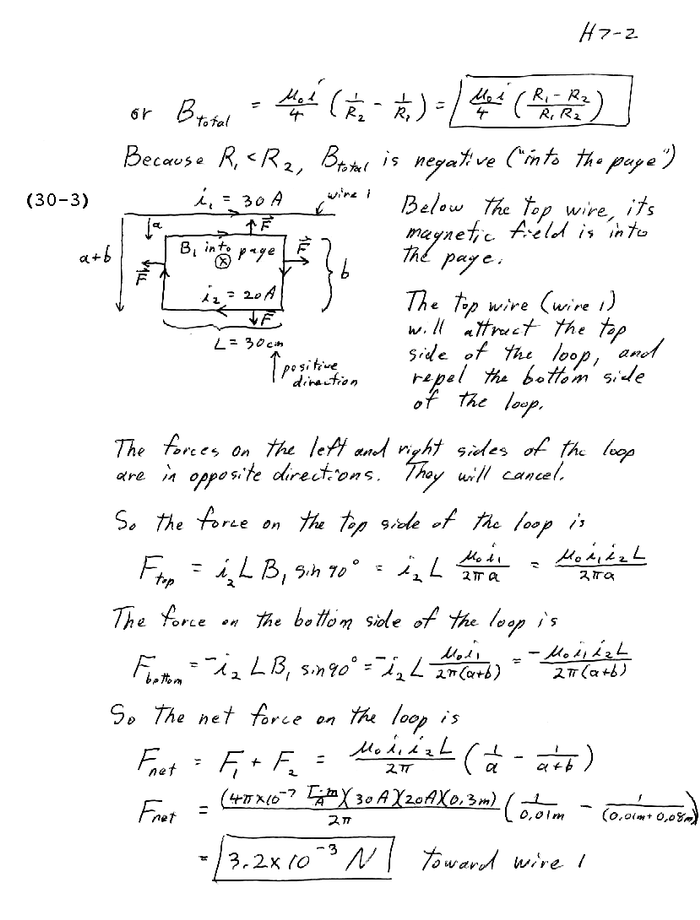 H7-2
or B_total = μ₀i/4 (1/R₂ - 1/R₁) = μ₀i/4 ((R₁ - R₂)/(R₁R₂))
Because R₁ < R₂, B_total is negative ("into the page")
(30-3)
i₁ = 30 A
wire 1
a
F⃗
a+b
B₁ into page
⊗
F⃗
F⃗
b
i₂ = 20A
F⃗
L = 30cm
positive
direction
Below the top wire, its
magnetic field is into
the page.
The top wire (wire 1)
will attract the top
side of the loop, and
repel the bottom side
of the loop.
The forces on the left and right sides of the loop
are in opposite directions. They will cancel.
So the force on the top side of the loop is
F_top = i₂ L B₁ sin 90° = i₂ L μ₀i₁/2πa = μ₀i₁i₂L/2πa
The force on the bottom side of the loop is
F_bottom = -i₂ L B₁ sin 90° = -i₂ L μ₀i₁/2π(a+b) = -μ₀i₁i₂L/2π(a+b)
So the net force on the loop is
F_net = F₁ + F₂ = μ₀i₁i₂L/2π (1/a - 1/(a+b))
F_net = (4π×10⁻⁷ T·m/A)(30A)(20A)(0.3m)/2π (1/0.01m - 1/(0.01m+0.08m)
= 3.2×10⁻³ N toward wire 1